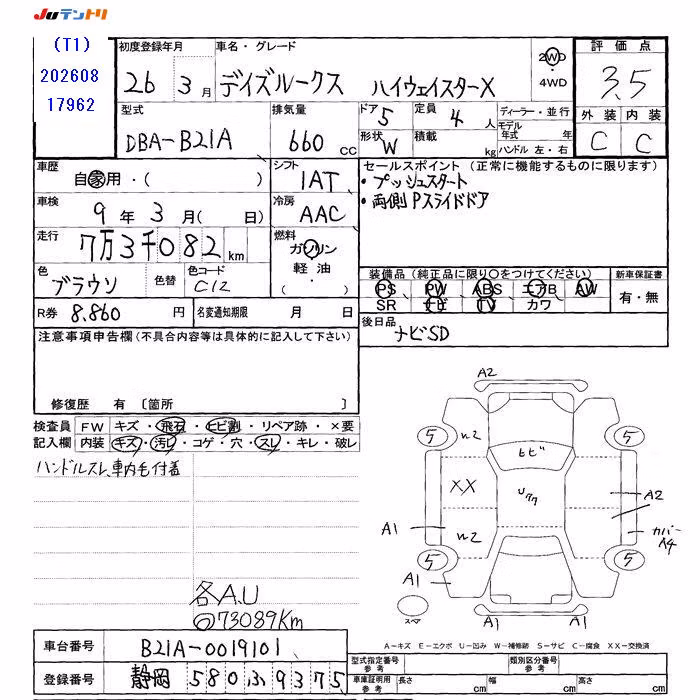 JUテントリ
(T1)
202608
17962
初度登録年月
26 3月
車名・グレード
デイズルークス ハイウェイスターX
2WD
・
4WD
評価点
3.5
外装 内装
C C
型式
DBA-B21A
排気量
660 CC
ドア 5
形状 W
定員 4 人
積載 kg
ディーラー・並行
モデル年式 年
ハンドル 左・右
車歴
自家用・( )
シフト
IAT
車検
9年 3月( 日)
冷房
AAC
走行
7万3千082km
燃料
ガソリン
軽油
・( )
色
ブラウン
色替
色コード
C12
R券 8,860 円
名変通知期限 月 日
セールスポイント(正常に機能するものに限ります)
・プッシュスタート
・両側Pスライドドア
装備品(純正品に限り○をつけてください)
PS PW ABS エアB AW
SR ナビ TV カワ
新車保証書
有・無
後日品
ナビSD
注意事項申告欄(不具合内容等は具体的に記入して下さい)
修復歴 有 〔箇所 〕
検査員
記入欄
FW キズ・飛石・ヒビ割・リペア跡・×要
内装 キズ・汚レ・コゲ・穴・スレ・キレ・破レ
ハンドルスレ、車内毛付着
各A.U
○73089Km
A2
5
5
W2
ヒビ
XX
Uワク
A2
A1
W2
カバー
A4
5
5
A1
スペア
A1
A1
A-キズ E-エクボ U-凹み W-補修跡 S-サビ C-腐食 XX-交換済
車台番号 B21A-0019101
登録番号 静岡 580 ふ 9375
型式指定番号
参考
類別区分番号
参考
車庫証明用
参考
長さ cm
幅 cm
高さ cm